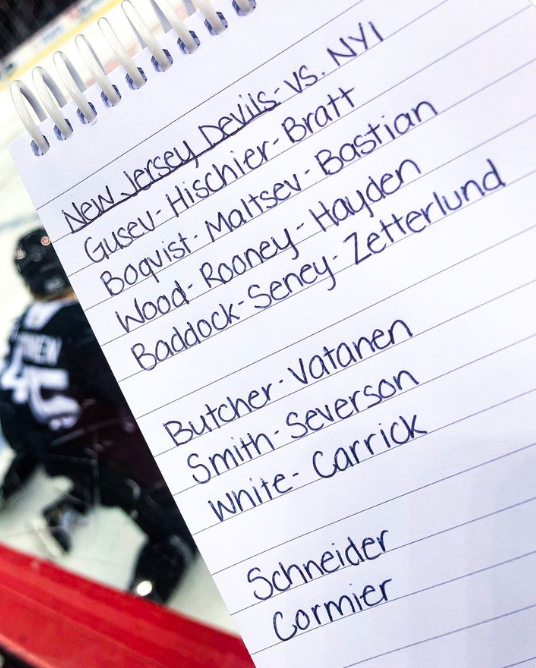 New Jersey Devils vs. NYI
Gusev - Hischier - Bratt
Boqvist - Maltsev - Bastian
Wood - Rooney - Hayden
Baddock - Seney - Zetterlund
Butcher - Vatanen
Smith - Severson
White - Carrick
Schneider
Cormier
45